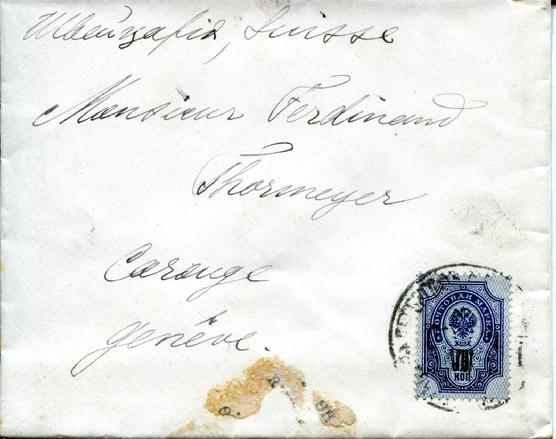 Швейцарія, Suisse
Monsieur Ferdinand
Thormeyer
Carouge
Genève.
ПОЧТОВАЯ МАРКА
КОП